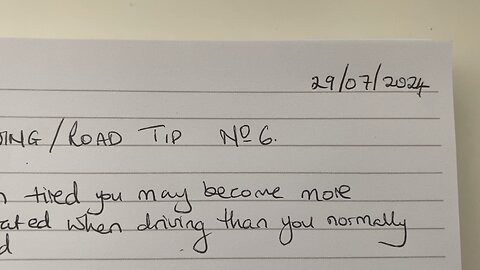 29/07/2024
ING/ROAD TIP Nº 6.
tired you may become more
ated when driving than you normally